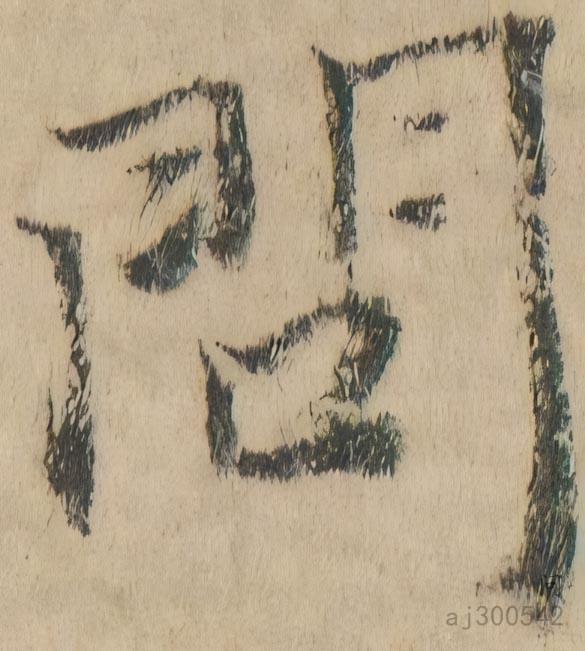 問
aj300542